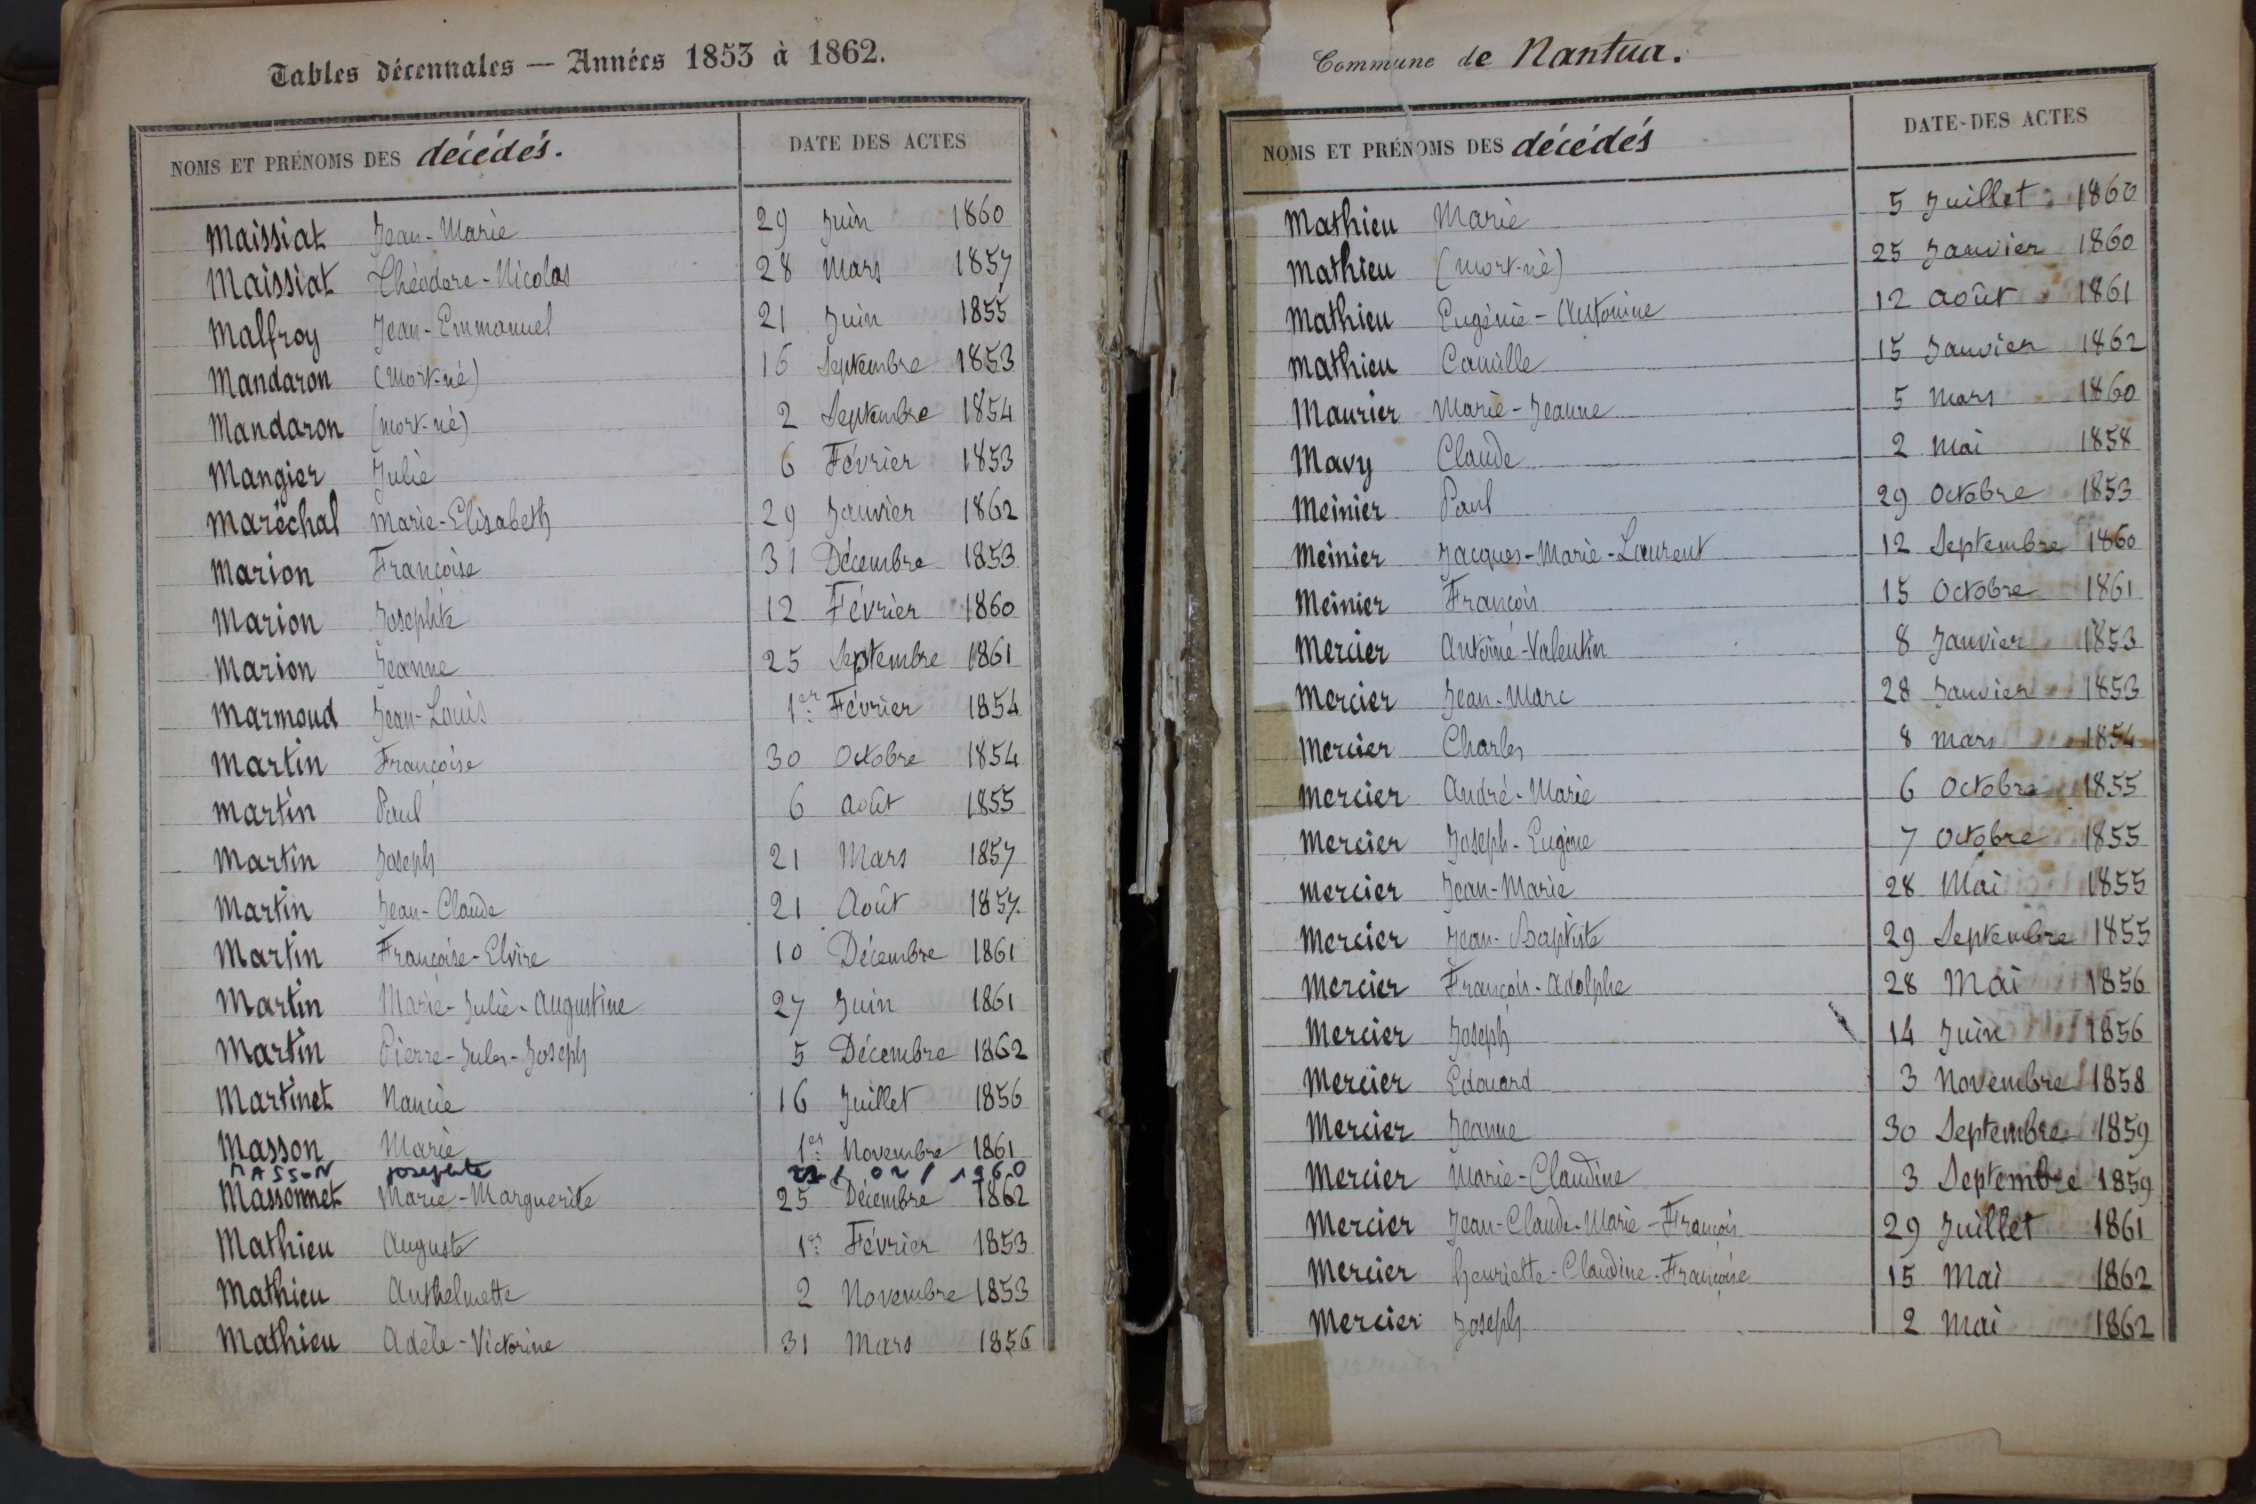 Tables décennales — Années 1853 à 1862.
NOMS ET PRÉNOMS DES décédés. DATE DES ACTES
Maissiat Jean-Marie 29 Juin 1860
Maissiat Théodore-Nicolas 28 Mars 1857
Malfroy Jean-Emmanuel 21 Juin 1855
Mandaron (mort-né) 16 Septembre 1853
Mandaron (mort-né) 2 Septembre 1854
Mangier Julie 6 Février 1853
Maréchal Marie-Elisabeth 29 Janvier 1862
Marion Françoise 31 Décembre 1853
Marion Josephte 12 Février 1860
Marion Jeanne 25 Septembre 1861
Marmoud Jean-Louis 1er Février 1854
Martin Françoise 30 Octobre 1854
Martin Paul 6 Août 1855
Martin Joseph 21 Mars 1857
Martin Jean-Claude 21 Août 1857.
Martin Françoise-Elvire 10 Décembre 1861
Martin Marie-Julie-Augustine 27 Juin 1861
Martin Pierre-Jules-Joseph 5 Décembre 1862
Martinet Nancie 16 Juillet 1856
Masson Marie 1er Novembre 1861
MASSON josephte / 02 /
Massonnet Marie-Marguerite 25 Décembre 1862
Mathieu Auguste 1er Février 1853
Mathieu Anthelmette 2 Novembre 1853
Mathieu Adèle-Victorine 31 Mars 1856
Commune de Nantua.
NOMS ET PRÉNOMS DES décédés DATE DES ACTES
Mathieu Marie 5 Juillet 1860
Mathieu (mort-né) 25 Janvier 1860
Mathieu Eugénie-Antonine 12 Août 1861
Mathieu Camille 15 Janvier 1862
Maurier Marie-Jeanne 5 Mars 1860
Mavy Claude 2 Mai 1858
Meinier Paul 29 Octobre 1853
Meinier Jacques-Marie-Laurent 12 Septembre 1860
Meinier François 15 Octobre 1861
Mercier Antoine-Valentin 8 Janvier 1853
Mercier Jean-Marc 28 Janvier 1853
Mercier Charles 8 Mars 1854
Mercier André-Marie 6 Octobre 1855
Mercier Joseph-Eugène 7 Octobre 1855
Mercier Jean-Marie 28 Mai 1855
Mercier Jean-Baptiste 29 Septembre 1855
Mercier François-Adolphe 28 Mai 1856
Mercier Joseph 14 Juin 1856
Mercier Edouard 3 Novembre 1858
Mercier Jeanne 30 Septembre 1859
Mercier Marie-Claudine 3 Septembre 1859
Mercier Jean-Claude-Marie-François 29 Juillet 1861
Mercier Henriette-Claudine-Françoise 15 Mai 1862
Mercier Joseph 2 Mai 1862